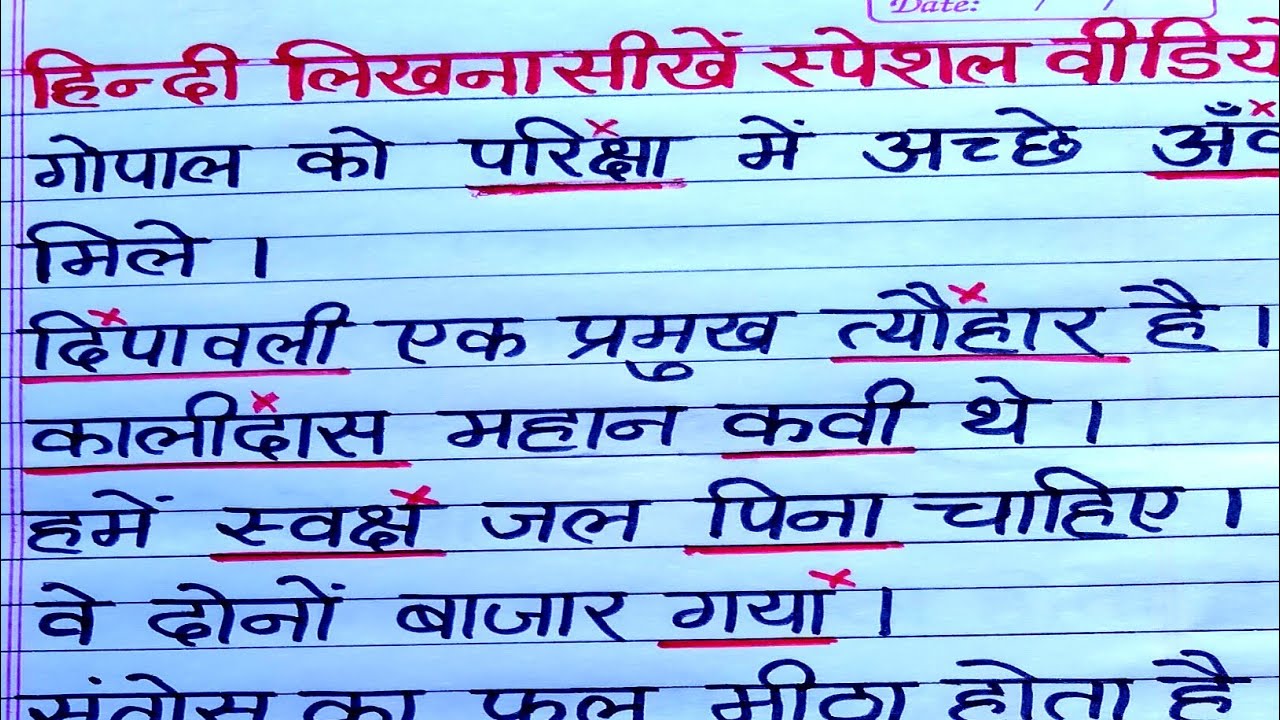 Date: / /
हिन्दी लिखना सीखें स्पेशल
गोपाल को परिक्षा में अच्छे
मिले ।
दिपावली एक प्रमुख त्यौहार है ।
कालीदास महान कवी थे ।
हमें स्वक्ष जल पिना चाहिए ।
वे दोनों बाजार गया ।
का फल मीठा होता है